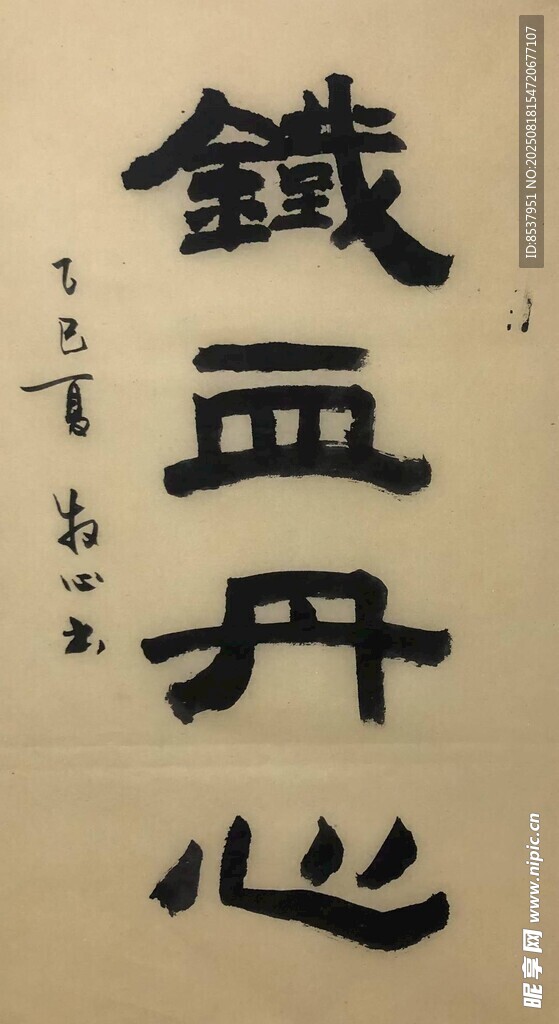 鐵血丹心
乙巳夏 牧心书
ID:8537951 NO:20250818154720677107
昵享网 www.nipic.cn